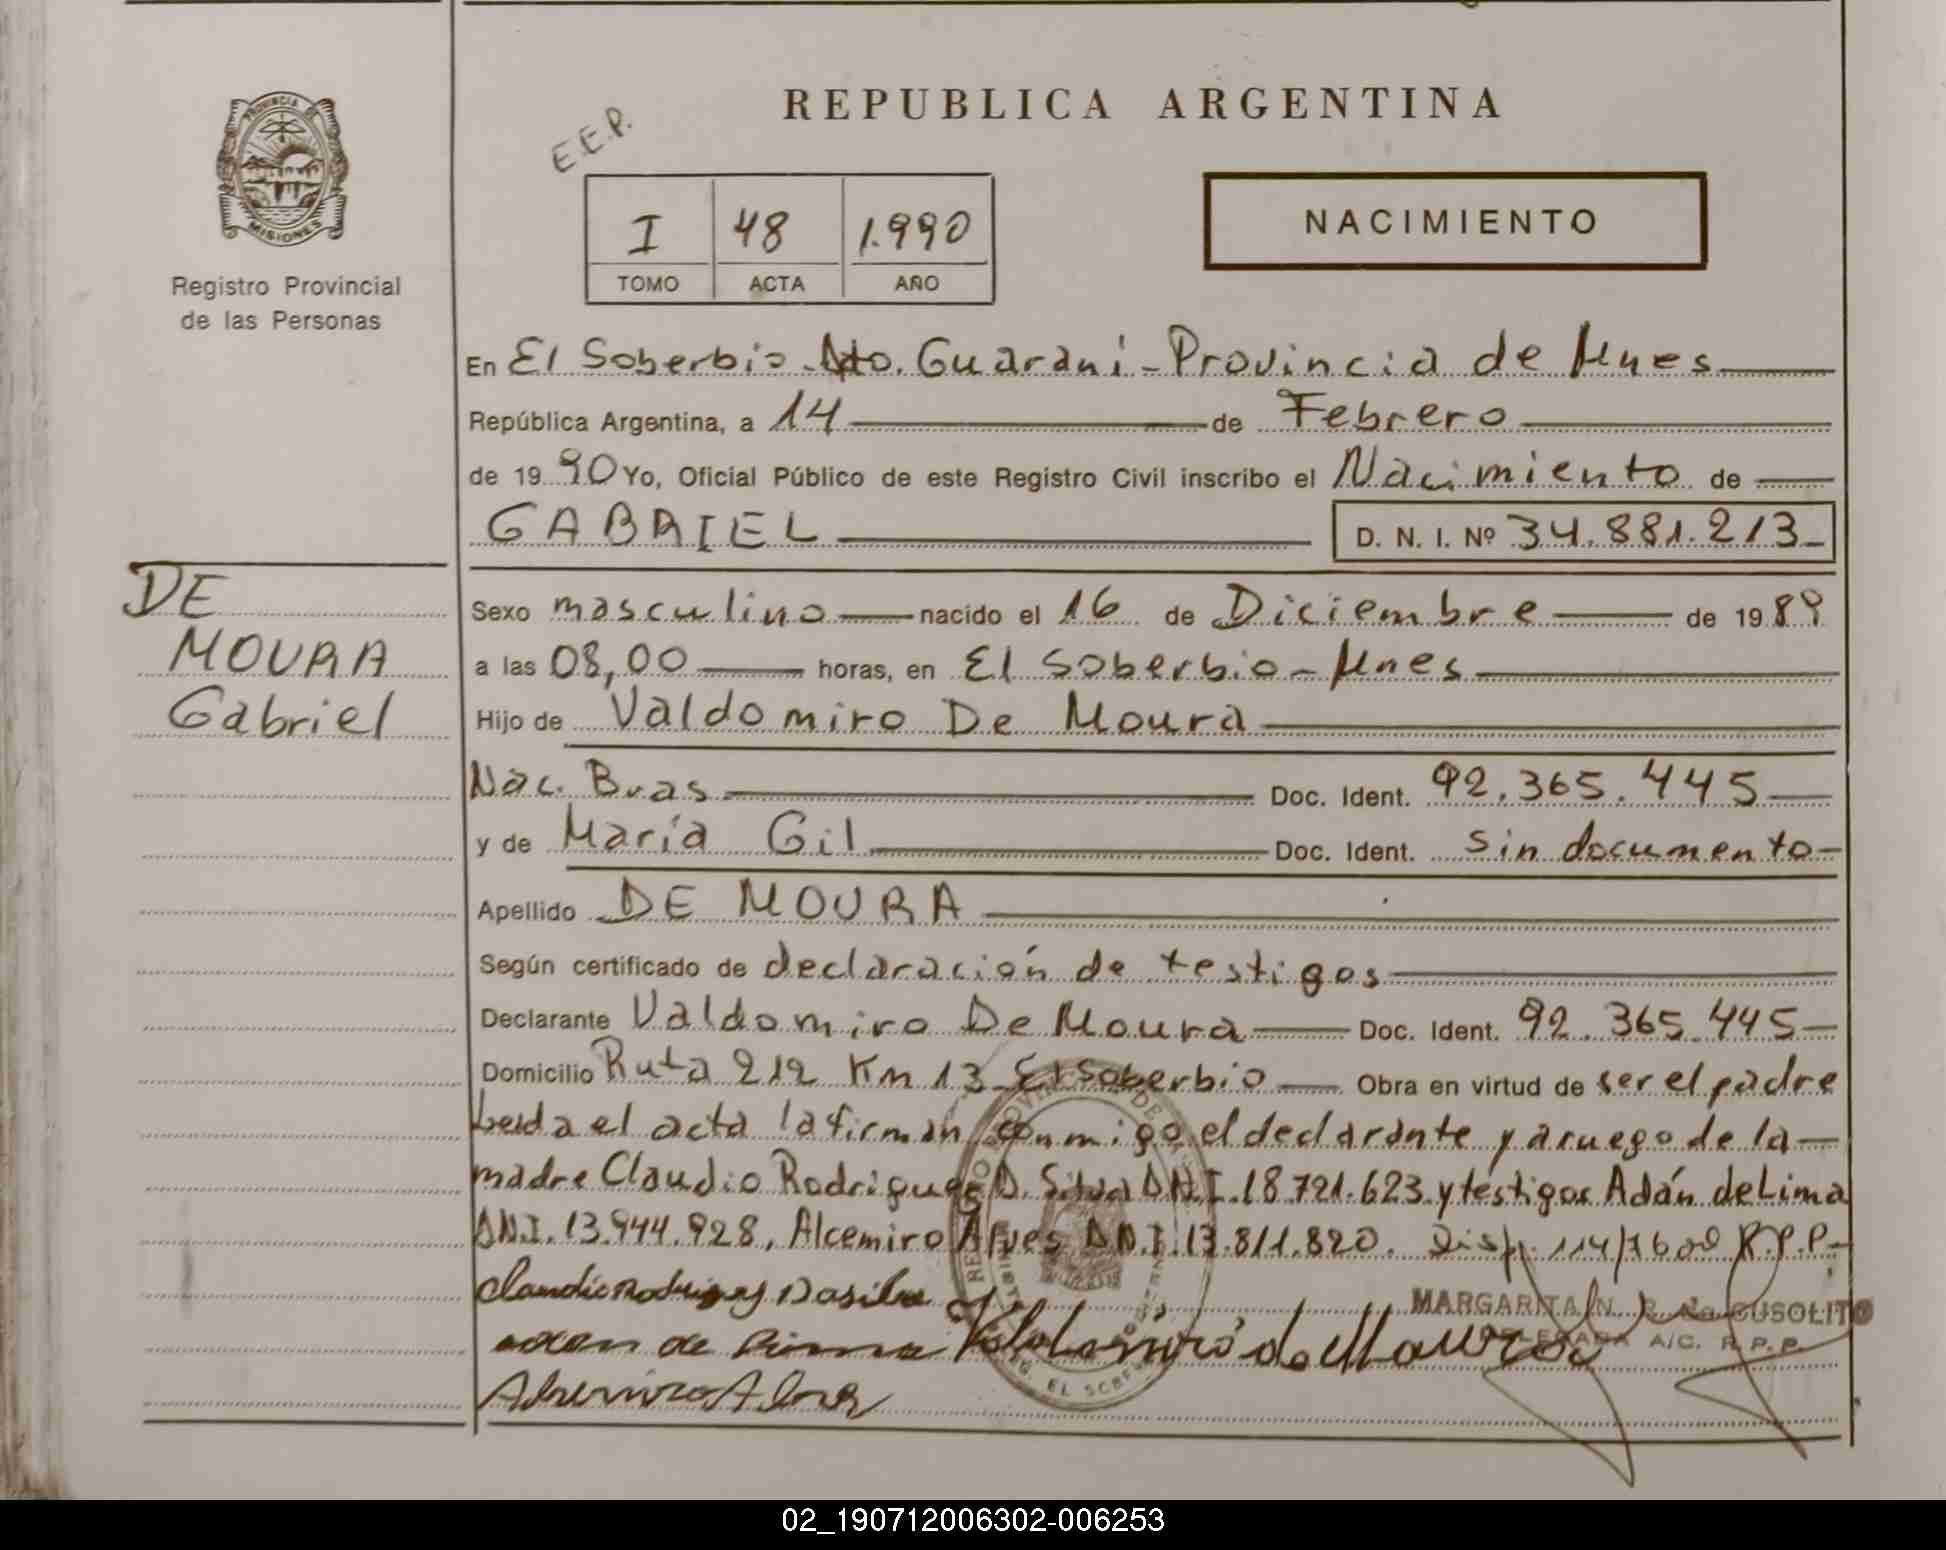 REPUBLICA ARGENTINA
E.E.P.
PROVINCIA DE
MISIONES
Registro Provincial
de las Personas
I 48 1.990
TOMO ACTA AÑO
NACIMIENTO
En El Soberbio-Dto. Guaraní-Provincia de Mnes
República Argentina, a 14 de Febrero
de 1990 Yo, Oficial Público de este Registro Civil inscribo el Nacimiento de
GABRIEL D. N. I. Nº 34.881.213
DE
MOURA
Gabriel
Sexo masculino nacido el 16 de Diciembre de 1989
a las 08,00 horas, en El Soberbio-Mnes
Hijo de Valdomiro De Moura
Nac. Bras Doc. Ident. 92.365.445
y de María Gil Doc. Ident. sin documento
Apellido DE MOURA
Según certificado de declaración de testigos
Declarante Valdomiro De Moura Doc. Ident. 92.365.445
Domicilio Ruta 212 Km 13 El Soberbio Obra en virtud de ser el padre
Leída el acta la firman conmigo el declarante y a ruego de la
madre Claudio Rodrigues D. Silva D.N.I. 18.721.623 y testigos Adán de Lima
D.N.I. 13.944.928, Alcemiro Alves D.N.I. 13.811.820. Disp. 114/ R.P.P.
Claudio Rodrigues Dasilva
adan de Lima
MARGARITA N. R. de CUSOLITO
DELEGADA A/C. R.P.P.
02_190712006302-006253